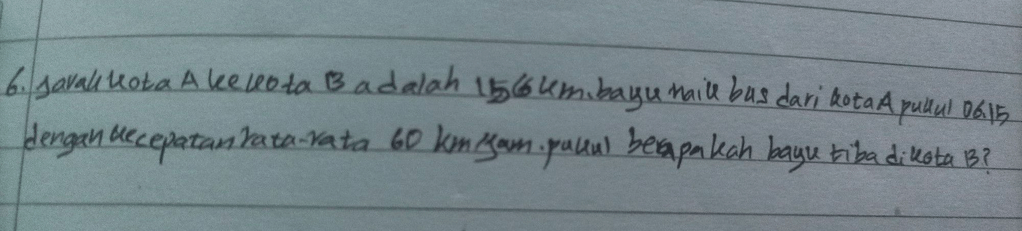 6. Jarak kota A ke kota B adalah 156 km. bayu naik bus dari kota A pukul 06.15
dengan kecepatan rata-rata 60 km/jam. pukul berapakah bayu tiba di kota B?